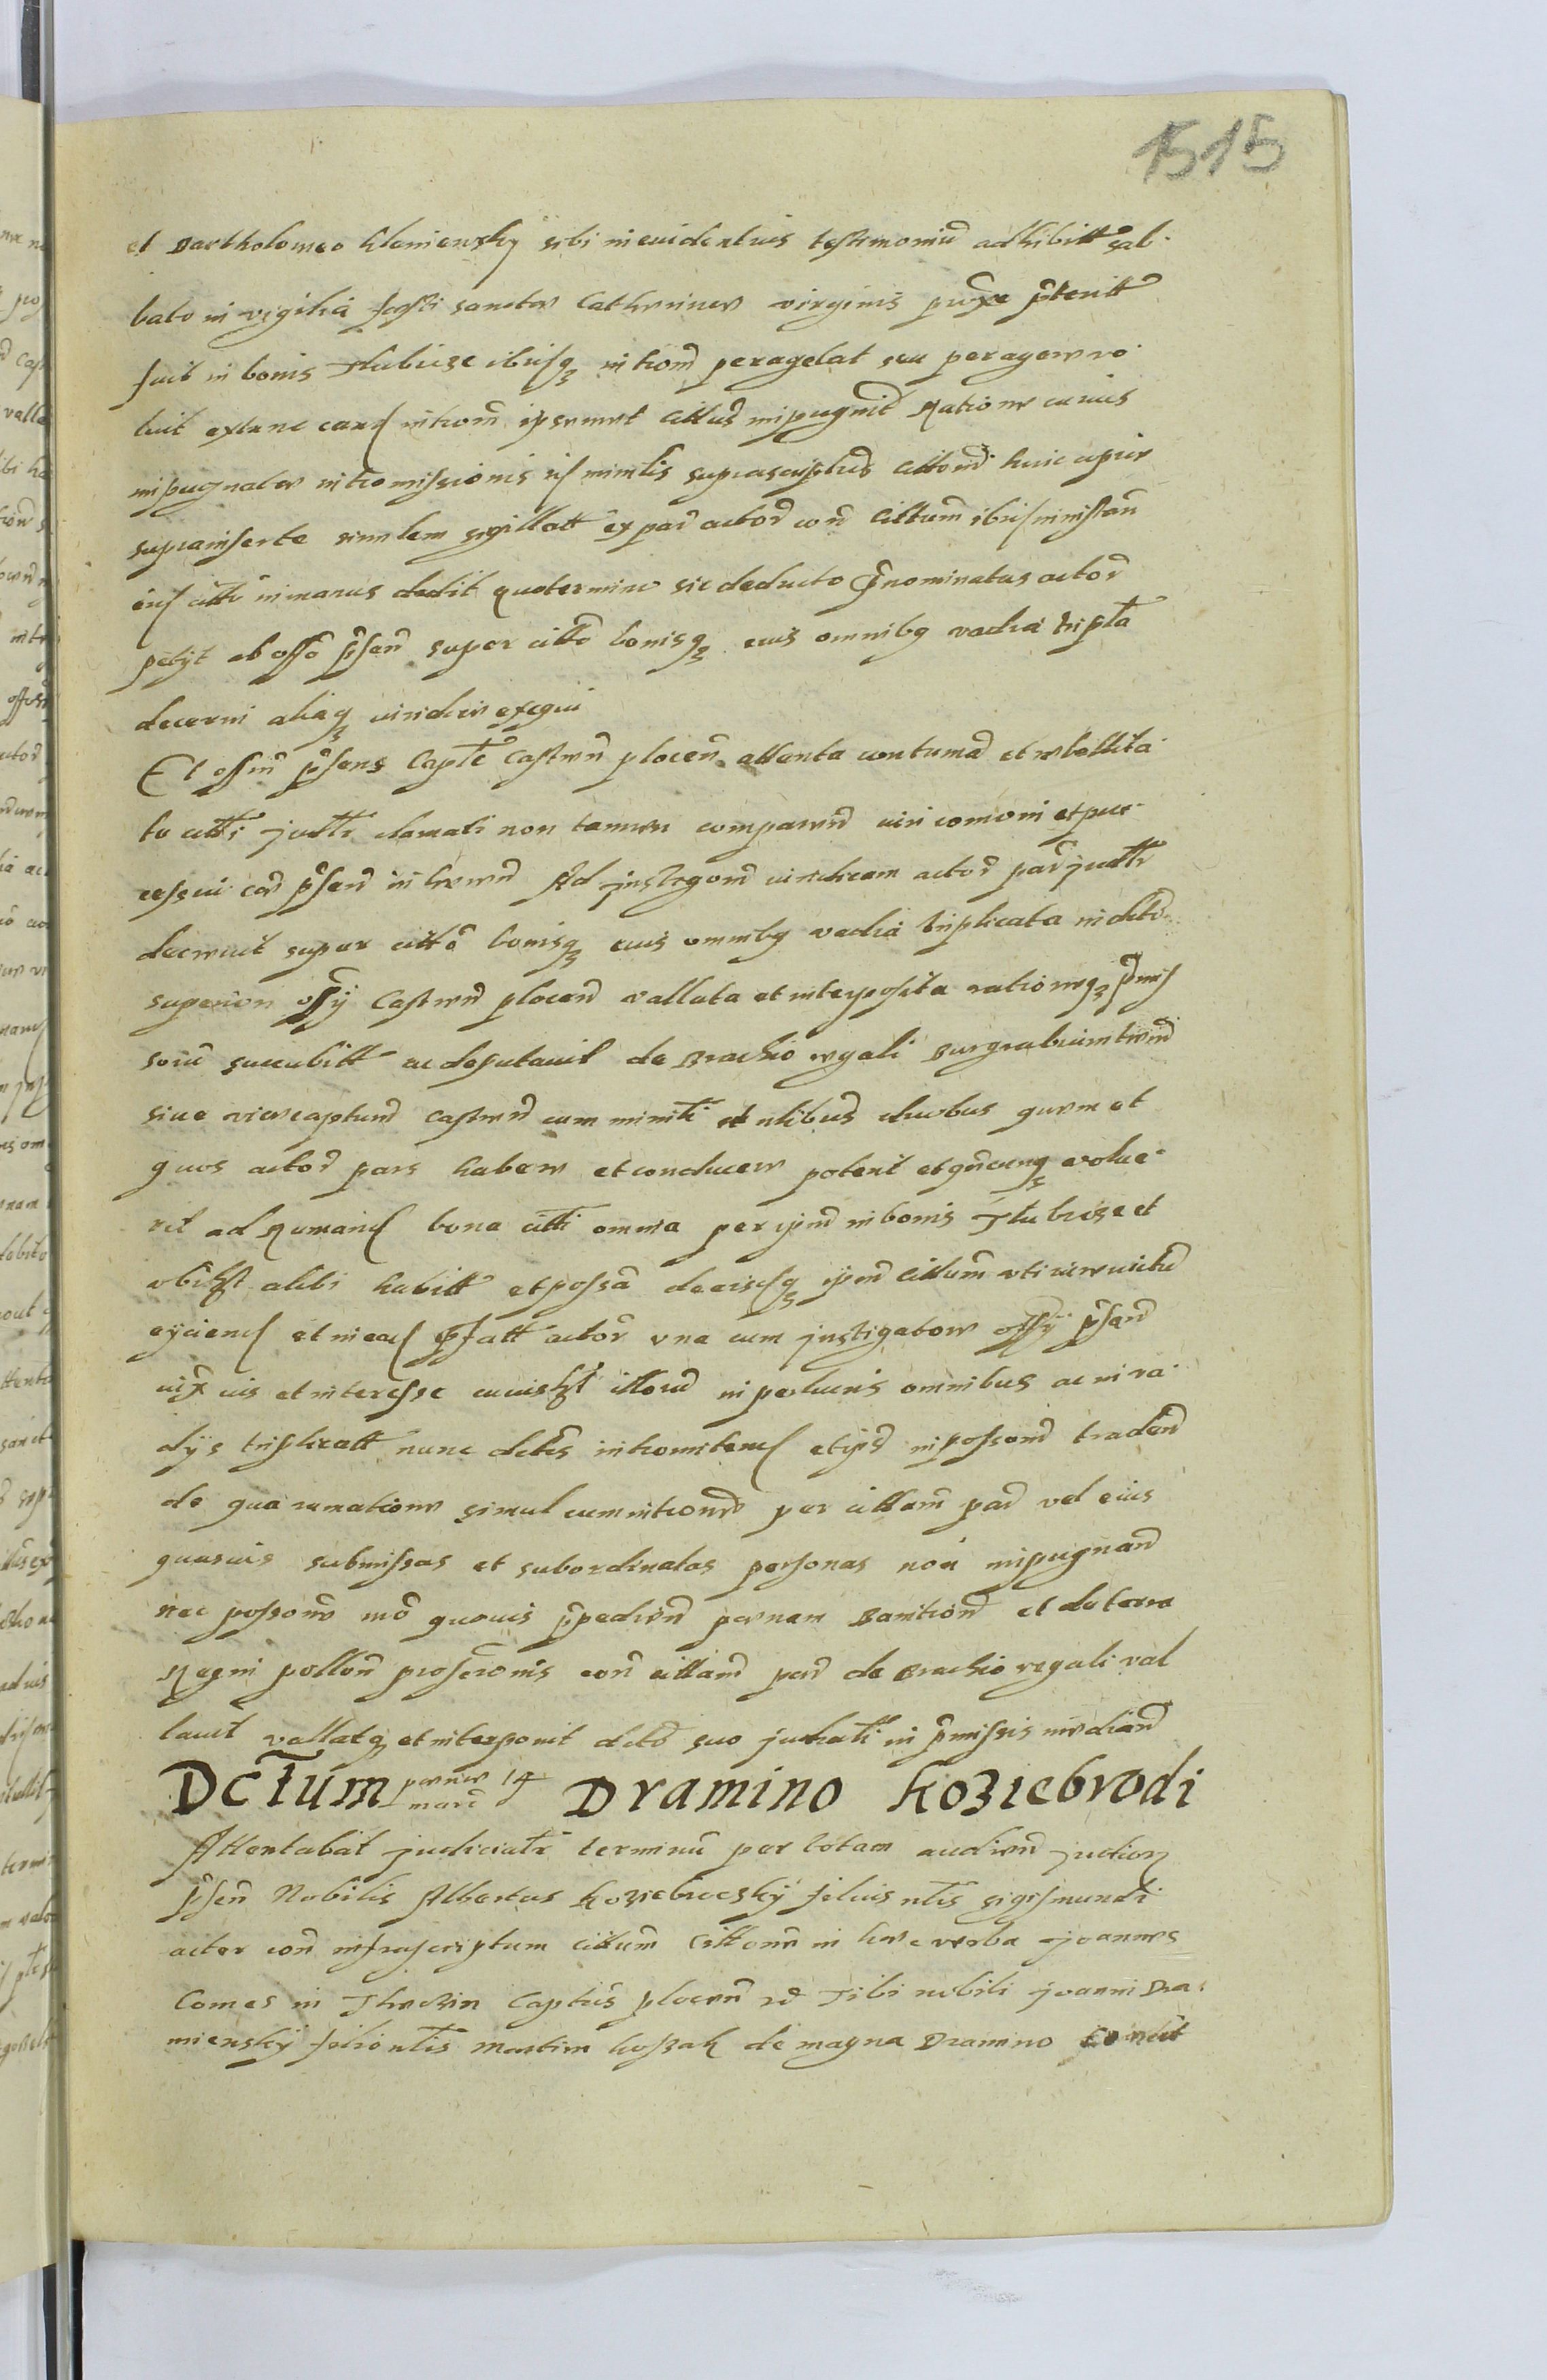 1515
et Bartholomeo Kleniewsky sibi in euidentius testimoniũ adhibitt̃ sab-
bato in vigilia festi sanctae Catherinae virginis proxe p̃teritt̃
fuit in bonis Thlubicze ibiq₃ introm̃ peragebat seu peragere vo-
luit extunc eand introm̃ ipsemet cittus impugnit Ratione cuius
impugnatae intromissionis is ministis suprascriptus citton̄ huic apud
suprainserte similem sigillatt̃ ex par̃ actor̃ con̄ Cittum ibi ministan̄
eius citti in manus dedit quo termino sic deducto p̃nominatus actor̃
petijt ab offō p̃sen̄ super cittō bonisq₃ eius omnibq vadia tripta
decerni aliaq₃ iuridice exequi
Et offm̄ p̃sens Captẽ Castren̄ plocen̄ attenta contumac̃ et rebellita-
te citti judtr̃ clamati non tamen comparen̄ iuri comoni et pur-
cessui cor̃ p̃sen̄ inhaeren̄ Ad instigom̃ iuridicam actor̃ par̃ judtr̃
decreuit super cittō bonisq₃ eius omnibq vadia triplicata in dctō
superiori offij Castren̄ plocen̄ vallata et interposita rationeq₃ p̃mis
soru succubitt̃ ac deputauit de Brachio regali Burgrabium terren̄
siue vicecaptum Castren̄ cum ministi et nlibus duobus quem et
quos actor̃ pars habere et conducere poterit et qn̄cunq₃ volue-
rit ad Rumand bona citti omnia per ipm̄ in bonis Thlubicze et
vbilzt alibi habitt̃ et possā deeisdq₃ ipm̄ Cittum vti iure victū
eijciend et in ead p̃fatt̃ actor̃ vna cum instigatore offij p̃sen̄
iux̃ ius et interesse cuiuslzt illoru in perlucris omnibus ac in va-
dijs triplicatt̃ nunc dctis intromitend et ijs in possom̃ traden̄
de qua rumatione simul cum introne per cittam par̃ vel eius
quasuis submissas et subordinatas personas non impugnan̄
nec possone mō quouis p̃pedien̄ poenam Banition̄ et de terra
Regni pollon̄ proscronis con̄ cittam par̃ de Brachio regali val
lauit vallatq₃ et interponit dctō suo judiatī in p̃missis median̄
DctUm poenae 14 marc̃ Dramino Koziebrodi
Attentabat judiciatr̃ terminū per totam audien̄ judiorz
p̃sen̄ Nobilis Albertus Koziebrocsky filius nlis Sigismundi
actor con̄ infrascriptum cittum Cittone in haec verba Joannes
Comes in Thenczin Captūs plocen̄ rc̃ Tibi nobili Joanni Dra-
miensky filio nlis Martini kossak de magna Dramino